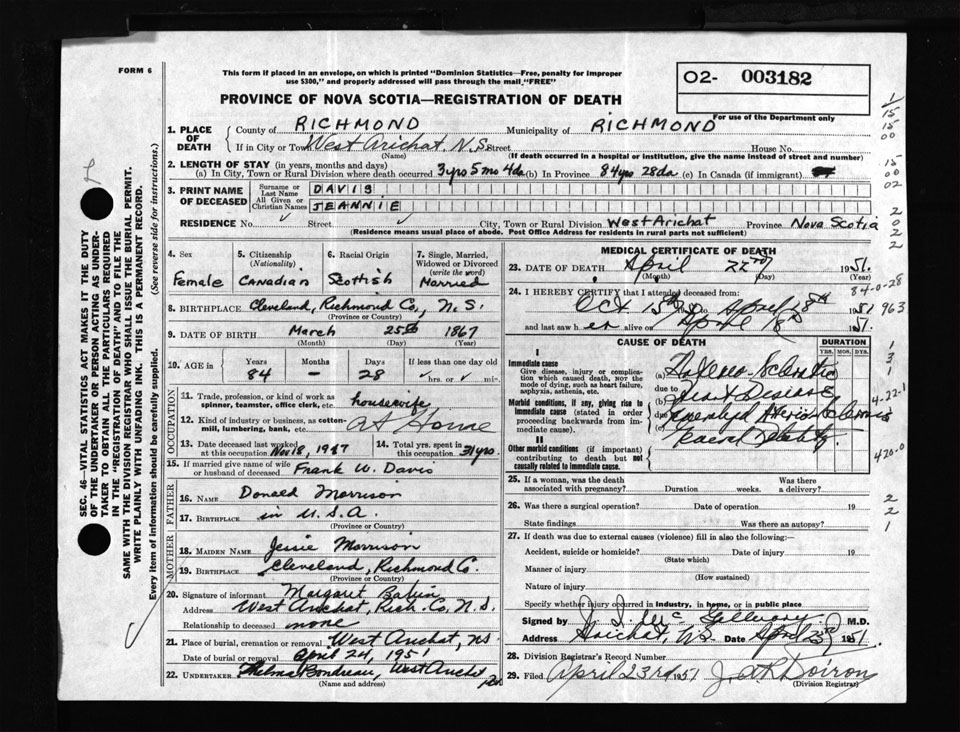 FORM 6
This form if placed in an envelope, on which is printed "Dominion Statistics—Free, penalty for improper
use $300," and properly addressed will pass through the mail "FREE"
02- 003182
For use of the Department only
PROVINCE OF NOVA SCOTIA—REGISTRATION OF DEATH
1. PLACE OF DEATH
County of RICHMOND Municipality of RICHMOND
If in City or Town West Arichat, N.S. Street House No.
(Name) (If death occurred in a hospital or institution, give the name instead of street and number)
2. LENGTH OF STAY (in years, months and days)
(a) In City, Town or Rural Division where death occurred 3 yrs 5 mo 4 da (b) In Province 84 yrs 28 da (c) In Canada (if immigrant)
3. PRINT NAME OF DECEASED
Surname or Last Name DAVIS
All Given or Christian Names JEANNIE
RESIDENCE No. Street City, Town or Rural Division West Arichat Province Nova Scotia
(Residence means usual place of abode. Post Office Address for residents in rural parts not sufficient)
4. Sex Female
5. Citizenship (Nationality) Canadian
6. Racial Origin Scottish
7. Single, Married, Widowed or Divorced (write the word) Married
8. BIRTHPLACE Cleveland, Richmond Co., N.S.
(Province or Country)
9. DATE OF BIRTH March 25th 1867
(Month) (Day) (Year)
10. AGE in Years Months Days If less than one day old
84 — 28 hrs. or min.
OCCUPATION
11. Trade, profession, or kind of work as spinner, teamster, office clerk, etc. housewife
12. Kind of industry or business, as cotton-mill, lumbering, bank, etc. at Home
13. Date deceased last worked at this occupation Nov 18, 1947
14. Total yrs. spent in this occupation 31 yrs.
15. If married give name of wife or husband of deceased Frank W. Davis
FATHER
16. NAME Donald Morrison
17. BIRTHPLACE in U.S.A.
(Province or Country)
MOTHER
18. MAIDEN NAME Jessie Morrison
19. BIRTHPLACE Cleveland, Richmond Co.
(Province or Country)
20. Signature of informant Margaret
Address West Arichat, Rich. Co, N.S.
Relationship to deceased none
21. Place of burial, cremation or removal West Arichat, NS
Date of burial or removal April 24, 1951
22. UNDERTAKER Thelma Boudreau, West Arichat
(Name and address)
MEDICAL CERTIFICATE OF DEATH
23. DATE OF DEATH April 22nd 1951.
(Month) (Day) (Year)
84-0-28
24. I HEREBY CERTIFY that I attended deceased from:
Oct 15th 1950 to April 18th 1951
963
and last saw her alive on April 18th 1951.
CAUSE OF DEATH DURATION
YRS. MOS. DYS.
I
Immediate cause
Give disease, injury or complication which caused death, NOT the mode of dying, such as heart failure, asphyxia, asthenia, etc.
(a) Sclerotic
due to
(b) Heart Disease
4-22-1
Morbid conditions, if any, giving rise to immediate cause (stated in order proceeding backwards from immediate cause).
due to
(c) Arterio Sclerosis
II
Other morbid conditions (if important) contributing to death but not causally related to immediate cause.
Debility
25. If a woman, was the death associated with pregnancy? Duration weeks. Was there a delivery?
26. Was there a surgical operation? Date of operation 19
State findings Was there an autopsy?
27. If death was due to external causes (violence) fill in also the following:—
Accident, suicide or homicide? Date of injury 19
(State which)
Manner of injury
(How sustained)
Nature of injury
Specify whether injury occurred in industry, in home, or in public place
Signed by M.D.
Address Arichat, N.S. Date April 23rd 1951
28. Division Registrar's Record Number
29. Filed April 23rd 1951 Doiron
(Division Registrar)
SEC. 46—VITAL STATISTICS ACT MAKES IT THE DUTY
OF THE UNDERTAKER OR PERSON ACTING AS UNDER-
TAKER TO OBTAIN ALL THE PARTICULARS REQUIRED
IN THE "REGISTRATION OF DEATH" AND TO FILE THE
SAME WITH THE DIVISION REGISTRAR WHO SHALL ISSUE THE BURIAL PERMIT.
WRITE PLAINLY WITH UNFADING INK. THIS IS A PERMANENT RECORD.
Every item of information should be carefully supplied. (See reverse side for instructions.)